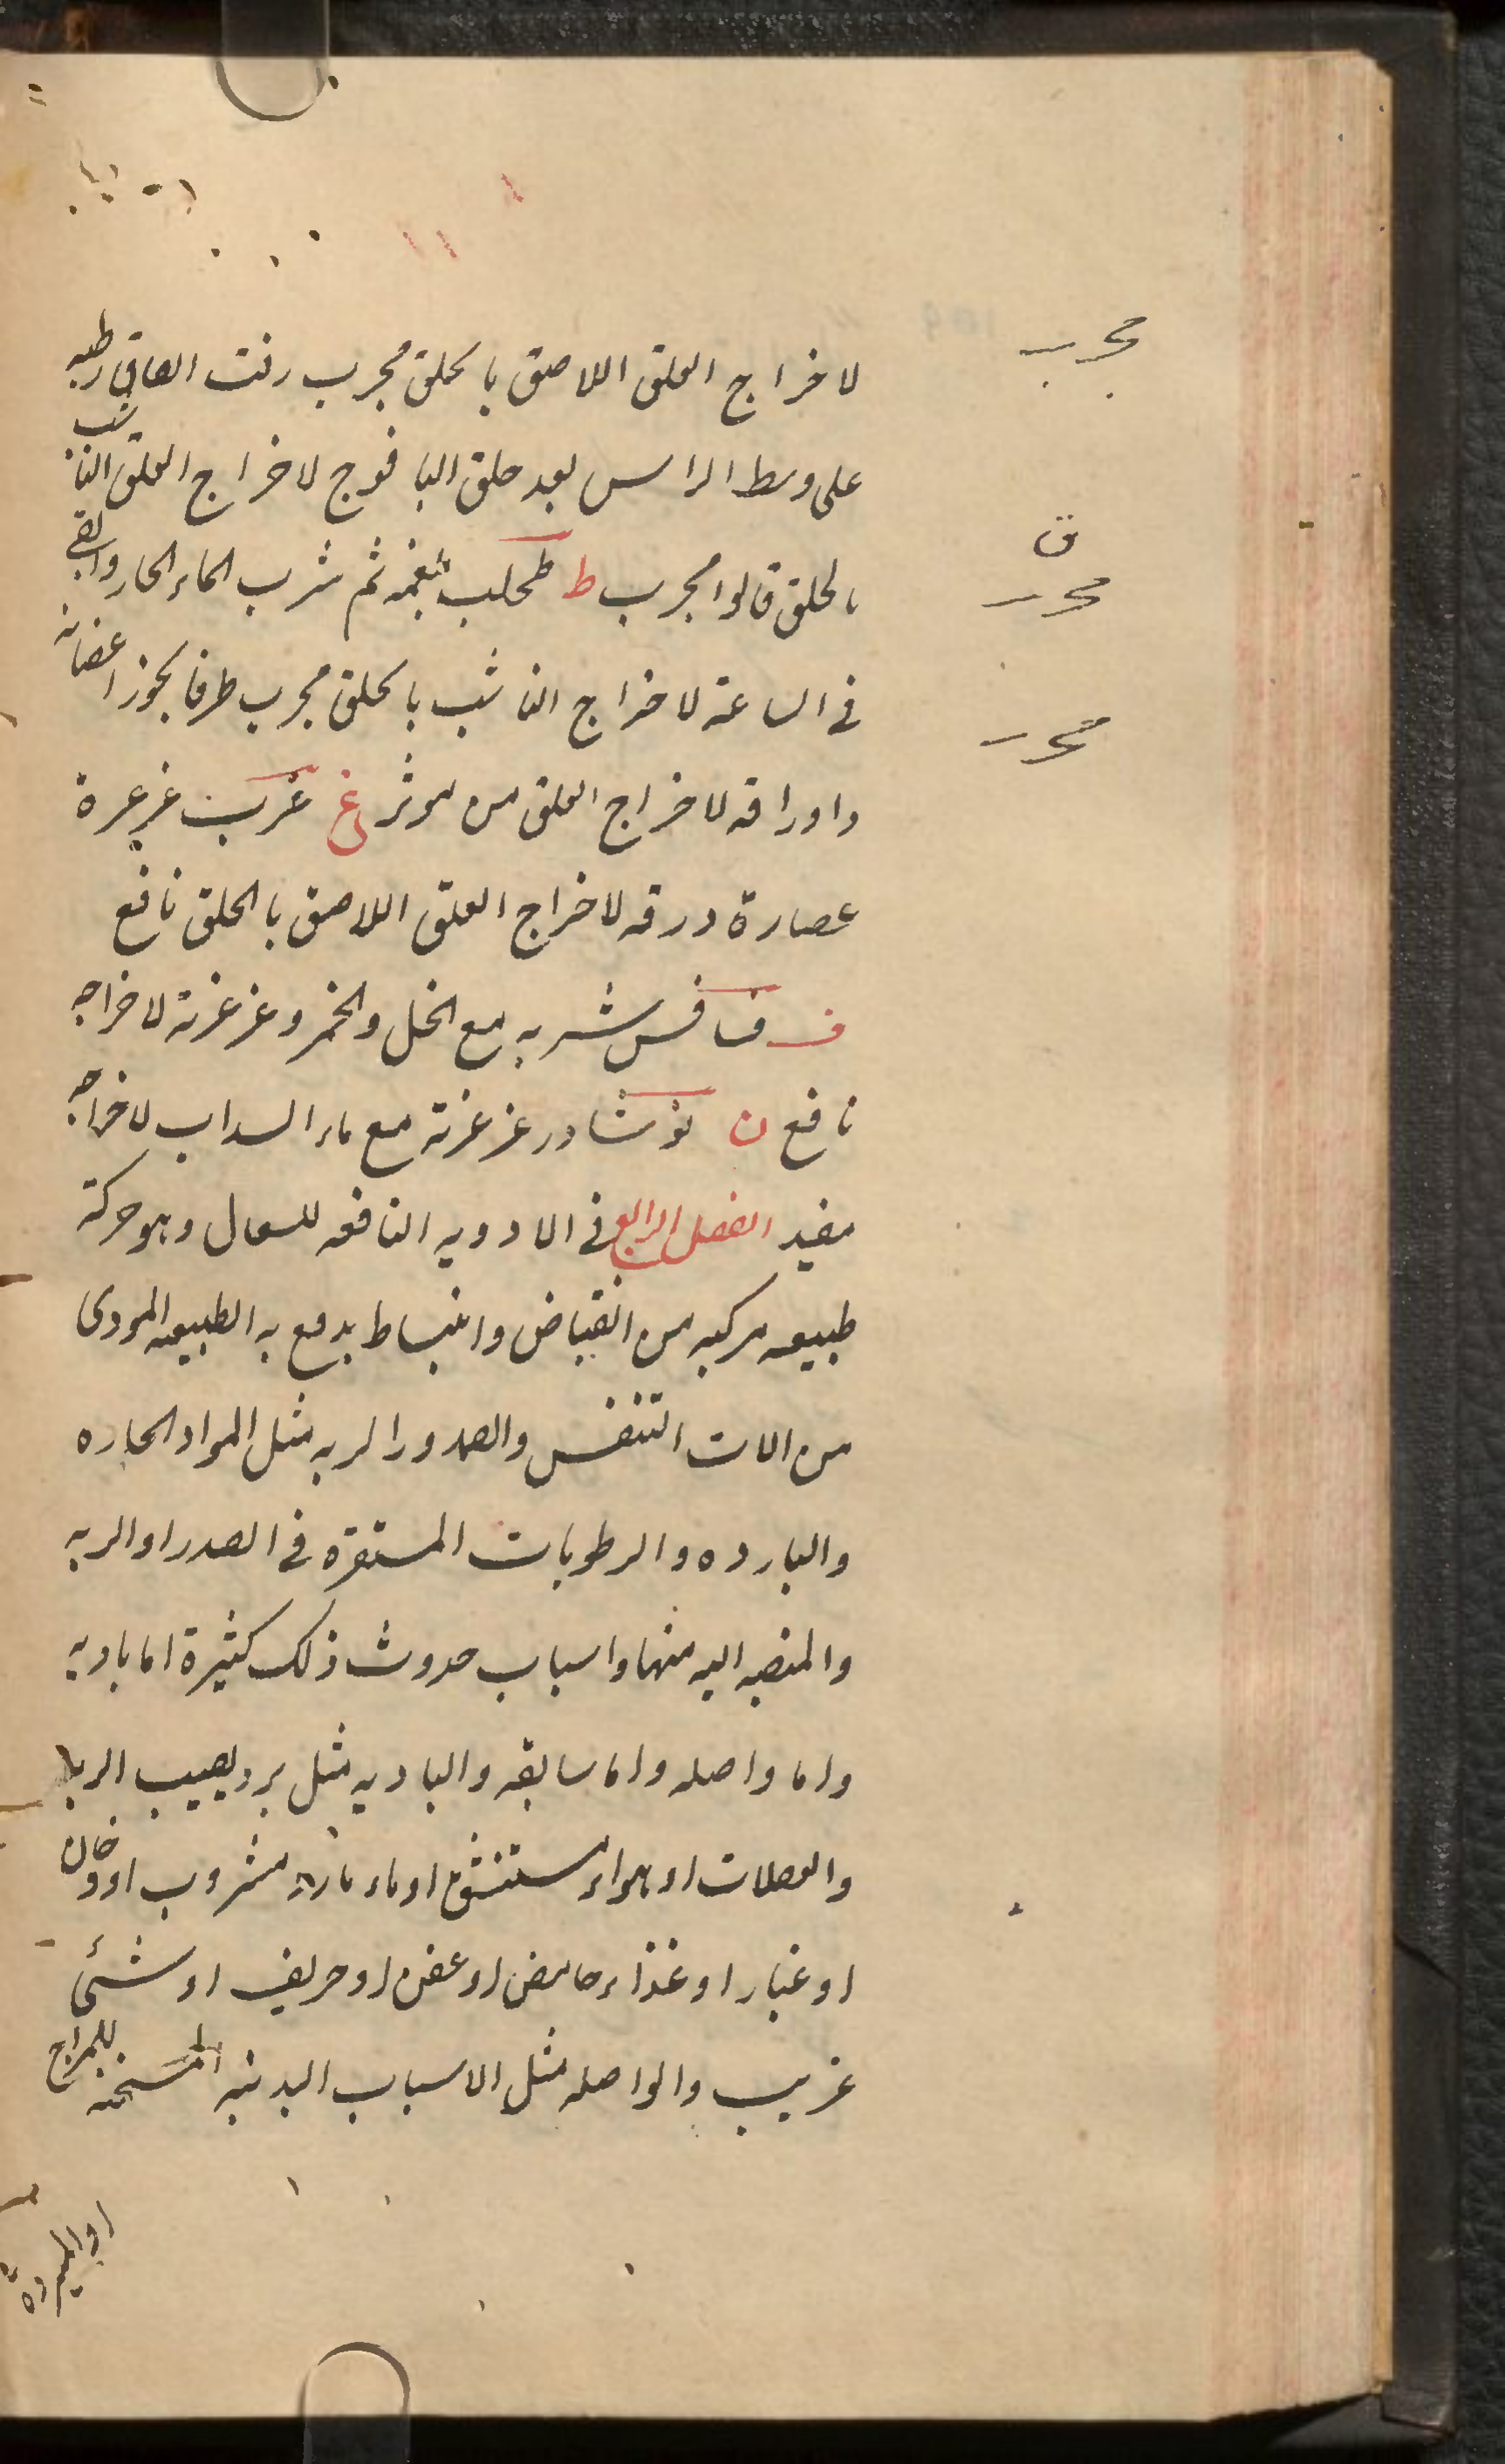 مجرب
لاخراج العلق اللاصق بالحلق مجرب زفت الصاق رطبه
على وسط الراس بعد حلق اليافوج لاخراج العلق الناشب
بالحلق قالوا مجرب ط طحلب ثم شرب الماء الحار والقى
ق
مجرب
فى الساعة لاخراج الناشب بالحلق مجرب طرفا بخور اغصانه
مجرب
واوراقه لاخراج العلق موثر غ غرب غرغرة
عصارة ورقه لاخراج العلق اللاصق بالحلق نافع
ف شربه مع الخل والخمر وغرغرته لاخراجه
نافع ن نوشادر غرغرته مع ماء السداب لاخراجه
مفيد الفصل الرابع فى الادويه النافعه للسعال وهو حركة
طبيعيه مركبه من انقباض وانبساط يدفع به الطبيعه الموذى
من الات التنفس والصدور الريه مثل المواد الحاره
والبارده والرطوبات المستقره فى الصدر او الريه
والمنصبه اليه منها واسباب حدوث ذلك كثيرة اما باديه
واما واصله واما سابقه والباديه مثل برد يصيب الريه
والعضلات او هواء مستنشق او ماء بارد مشروب او دخان
او غبار او غذاء حامض او عفن او حريف او شئ
غريب والواصله مثل الاسباب البدنيه المسخنه للمزاج
او المبردة